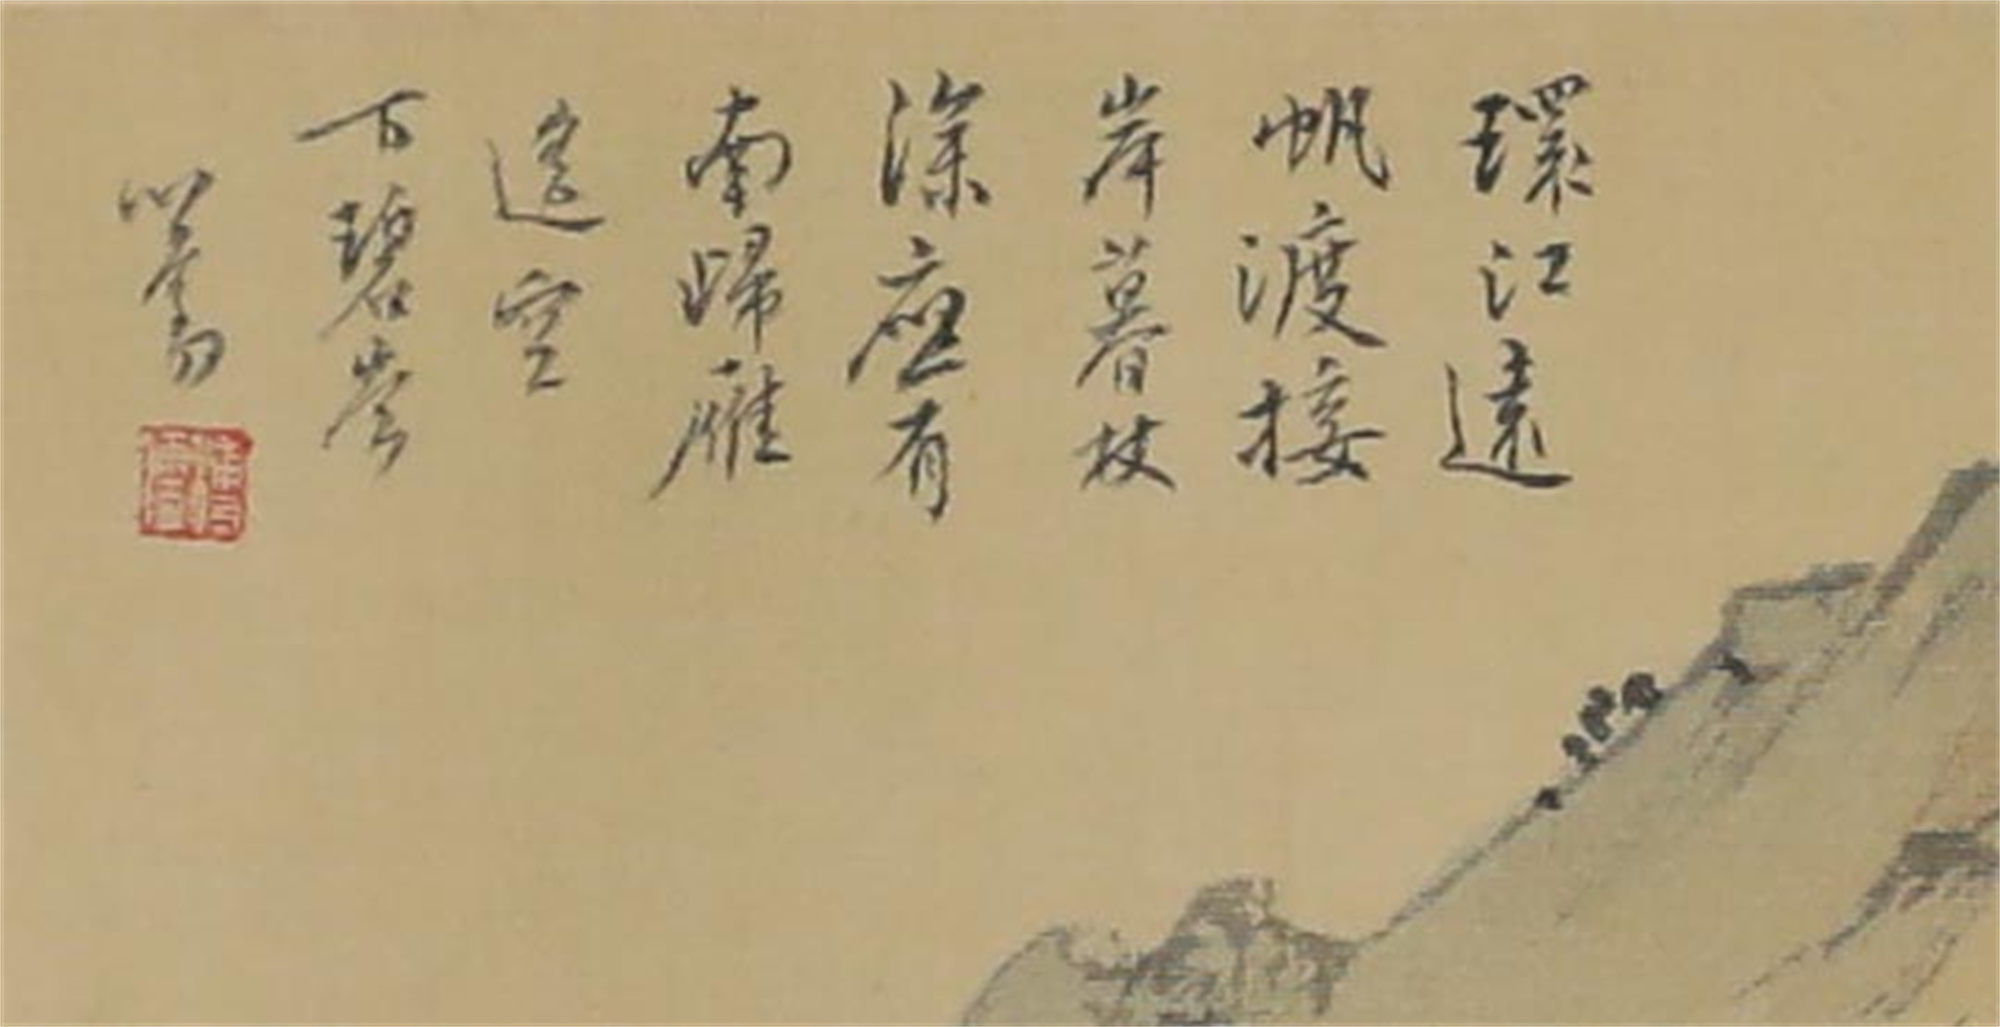 環江遠
帆渡接
岸暮枝
深應有
南歸雁
遙空
下碧岑
心畬